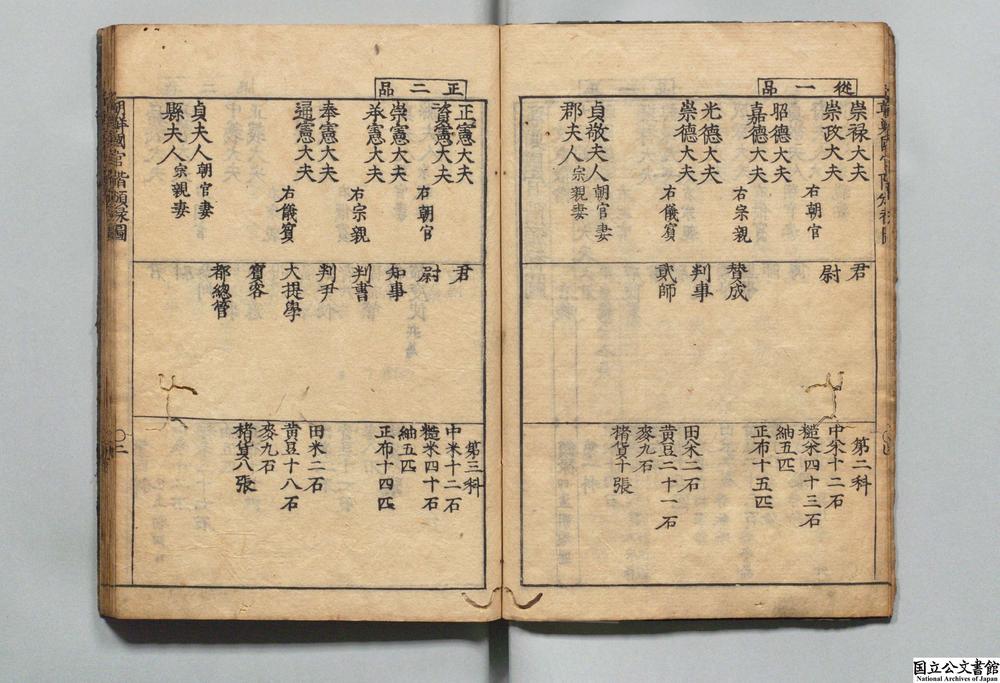 從一品
崇祿大夫
崇政大夫
右朝官
昭德大夫
嘉德大夫
右宗親
光德大夫
崇德大夫
右儀賓
貞敬夫人朝官妻
郡夫人宗親妻
君
尉
賛成
判事
貳師
第二科
中米十二石
糙米四十三石
紬五匹
正布十五匹
田米二石
黄豆二十一石
麥九石
楮貨十張
正二品
正憲大夫
資憲大夫
右朝官
崇憲大夫
承憲大夫
右宗親
奉憲大夫
通憲大夫
右儀賓
貞夫人朝官妻
縣夫人宗親妻
君
尉
知事
判書
判尹
大提學
賓客
都總管
第三科
中米十二石
糙米四十石
紬五匹
正布十四匹
田米二石
黄豆十八石
麥九石
楮貨八張
朝鮮國官階頒祿圖
〇二
国立公文書館
National Archives of Japan